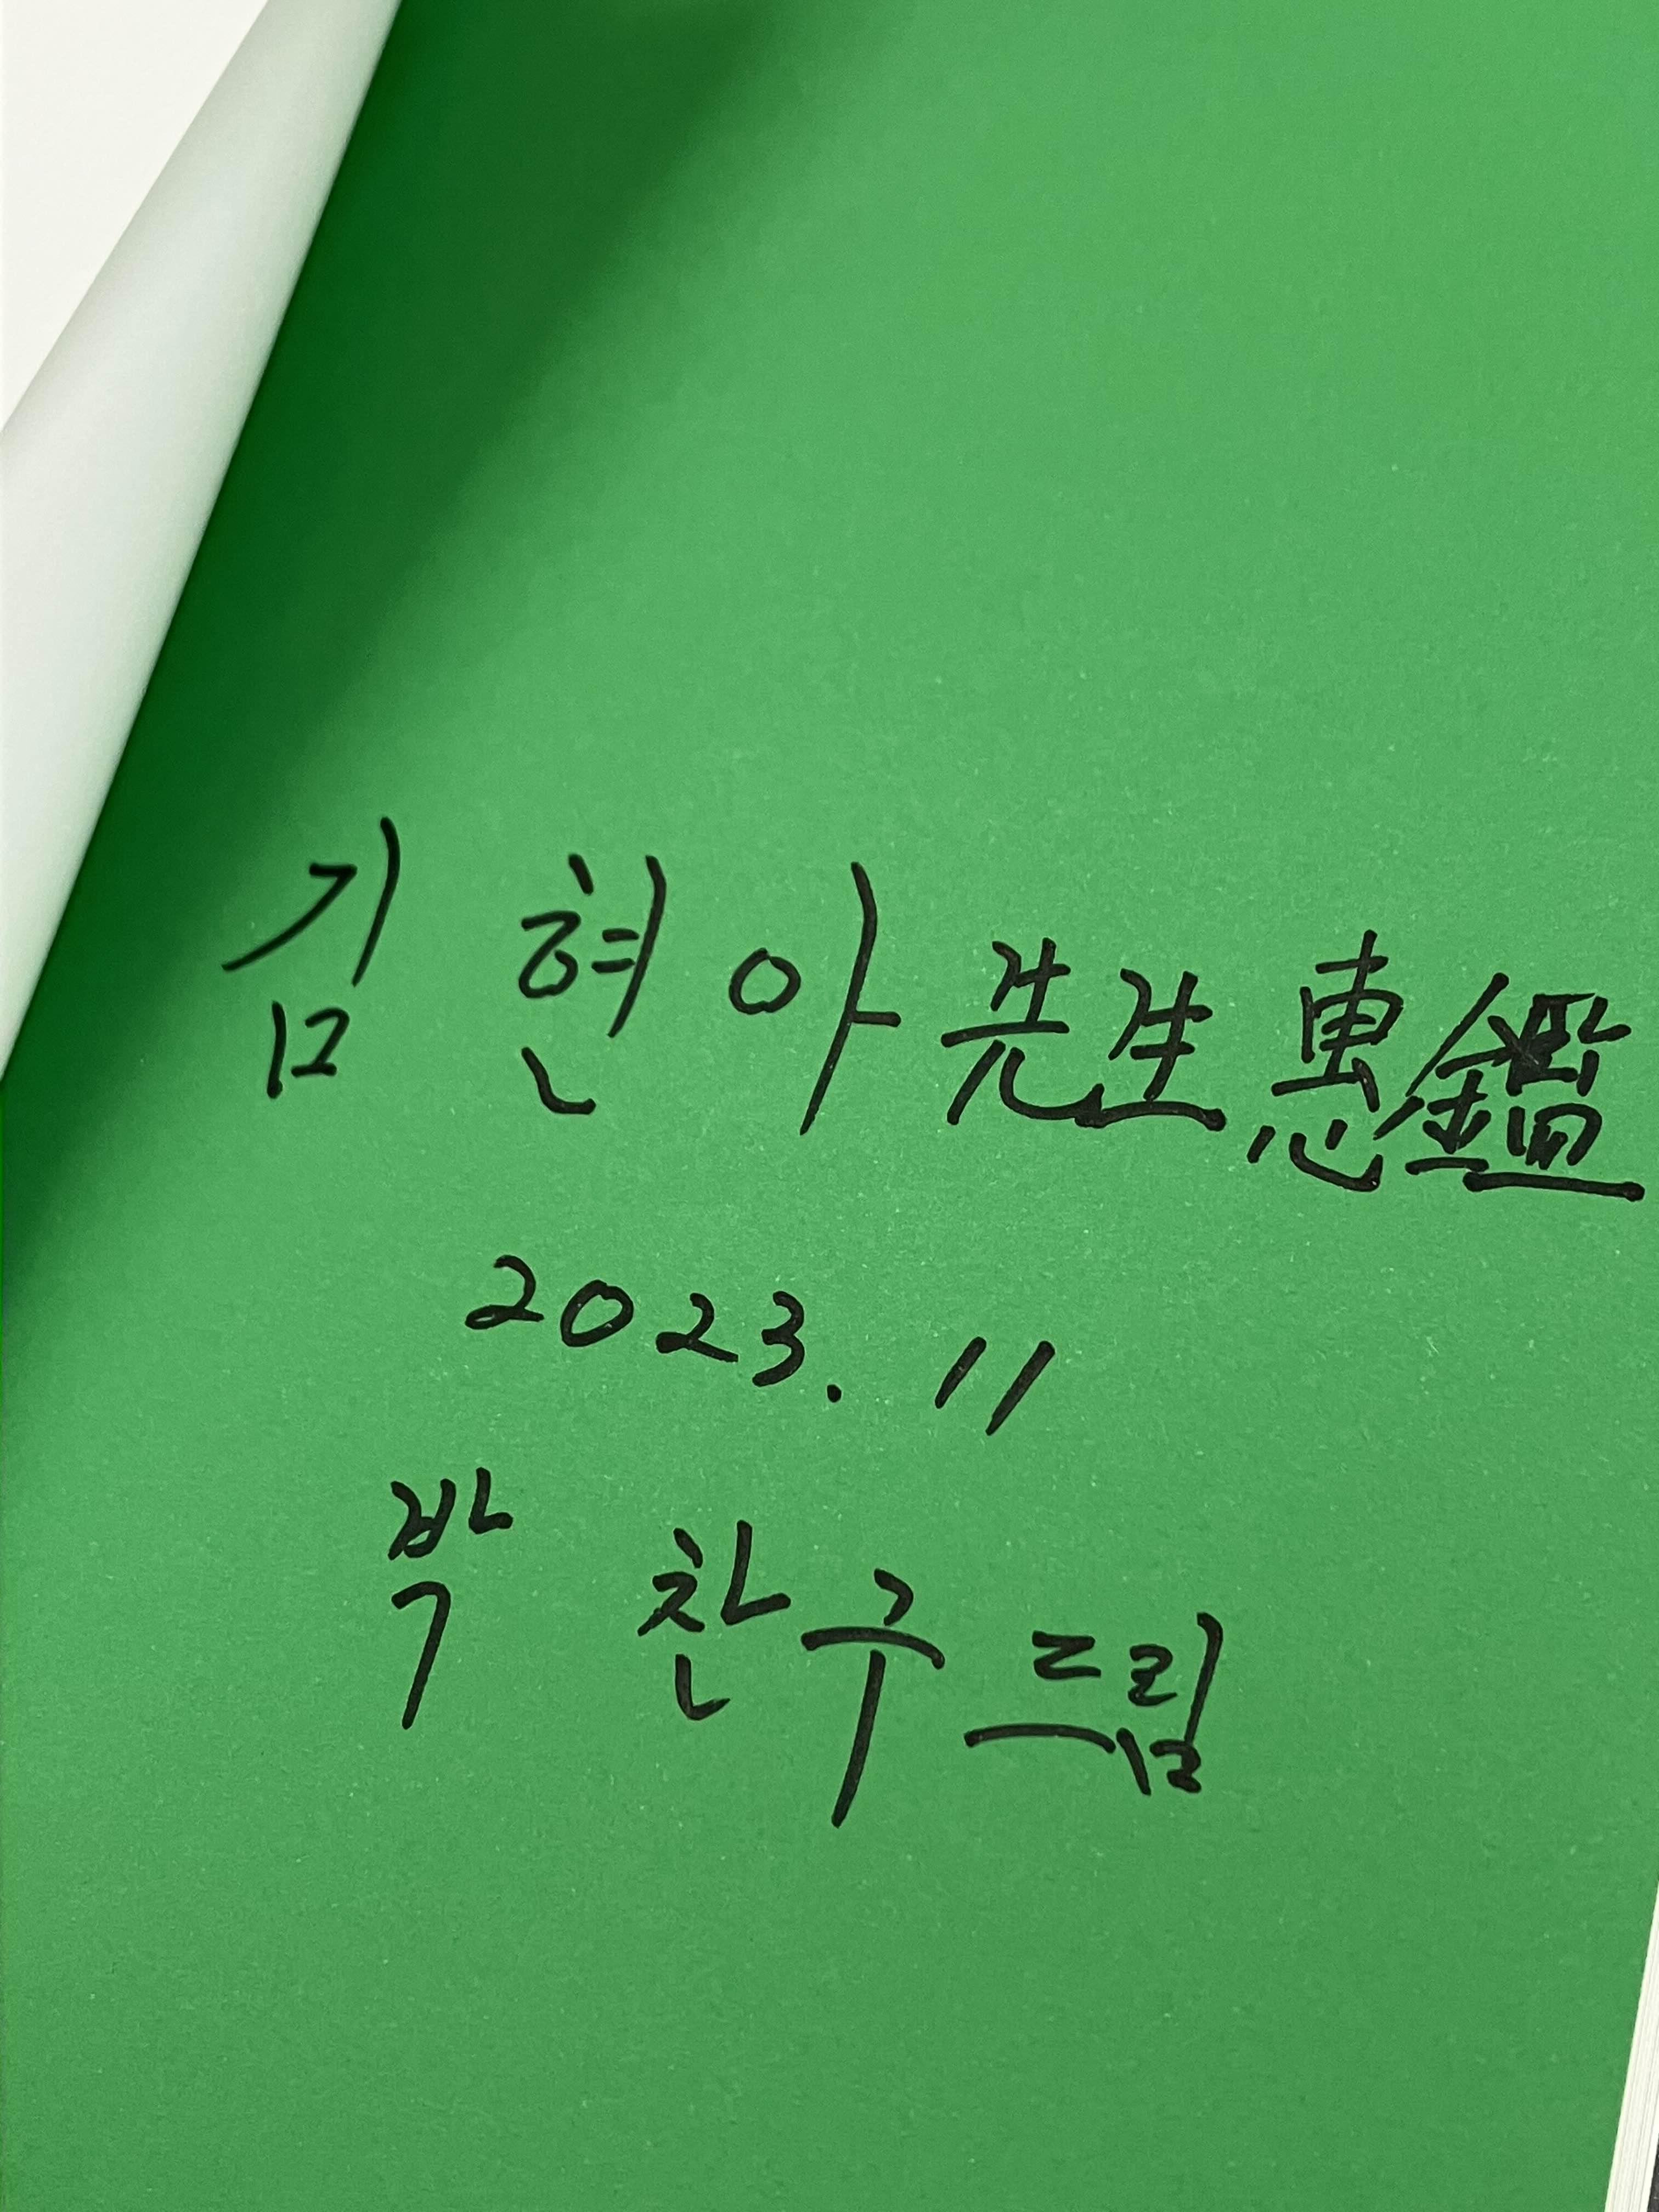 김 현 아 先生 惠鑑
2023. 11
박 찬구 드림